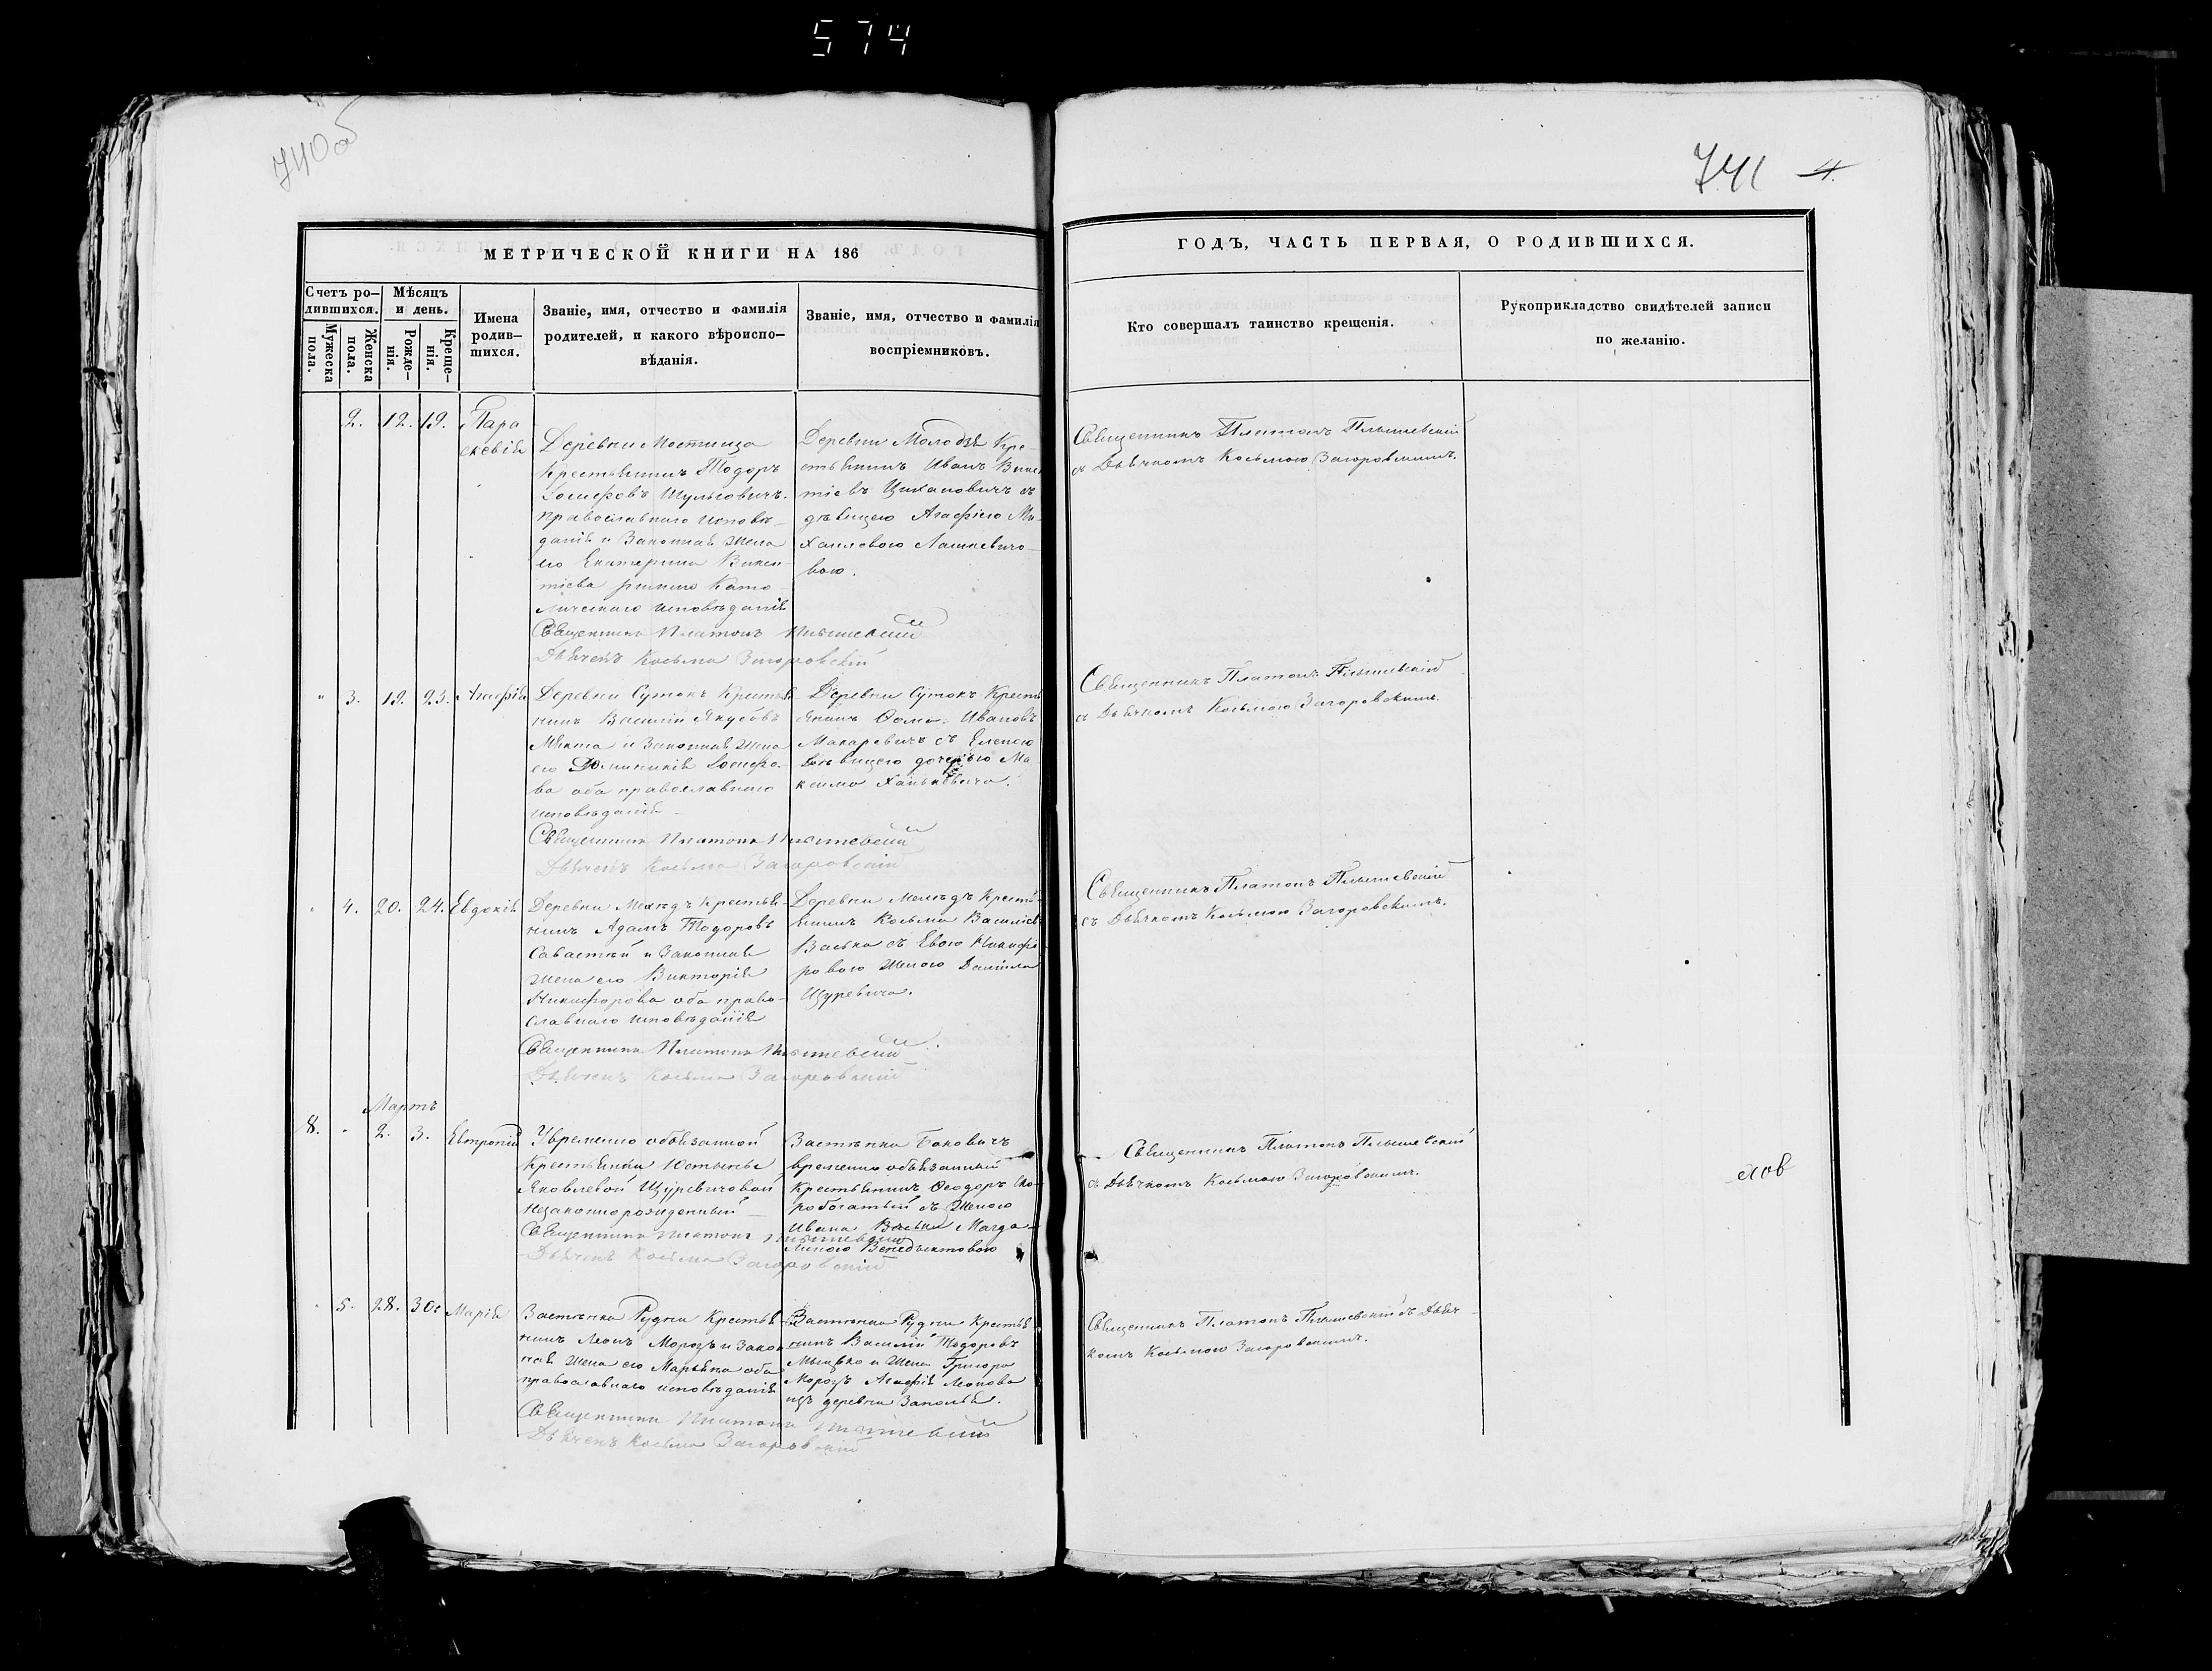 574
740об
741 4.
МЕТРИЧЕСКОЙ КНИГИ НА 186
ГОДЪ, ЧАСТЬ ПЕРВАЯ, О РОДИВШИХСЯ.
Счетъ ро-
дившихся.
Мужеска
пола.
Женска
пола.
Мѣсяцъ
и день.
Рожде-
нія.
Креще-
нія.
Имена
родив-
шихся.
Званіе, имя, отчество и фамилія
родителей, и какого вѣроиспо-
вѣданія.
Званіе, имя, отчество и фамилія
воспріемниковъ.
Кто совершалъ таинство крещенія.
Рукоприкладство свидѣтелей записи
по желанію.
2. 12. 19. Пара
скевія
Деревни Мостища
Крестьянинъ Тодоръ
Іосифовъ Шульговичъ
православнаго исповѣ-
данія и Законная жена
его Екатерина Викен-
тіева римско Като
лическаго исповѣданія
Священникъ Платонъ
Дьячекъ Косьма Загоровскій
Деревни Кре-
стьянинъ Иванъ Викен
тіевъ Цихановичъ съ
дѣвицею Агафіею Ми-
хаиловою Лашкевичо-
вою.
Священникъ Платонъ
съ Дьячкомъ Косьмою Загоровскимъ.
" 3. 19. 23. Агафія
Деревни Сутокъ Крестья
нинъ Василій Якубовъ
и Законная жена
его Доминикія Іосифо-
ва оба православнаго
исповѣданія
Священникъ Платонъ
Дьячекъ Косьма Загоровскій
Деревни Сутокъ Кресть
янинъ Ѳома Ивановъ
Макаревичъ съ Еленою
дѣвицею дочерью Ма-
ксима Ханькевича.
Священникъ Платонъ
съ Дьячкомъ Косьмою Загоровскимъ.
" 4. 20. 24. Евдокія
Деревни Крестья-
нинъ Адамъ Тодоровъ
Савастѣй и Законная
жена его Викторія
Никифорова оба право-
славнаго исповѣданія
Священникъ Платонъ
Дьячекъ Косьма Загоровскій
Деревни Кресть-
янинъ Косьма Василіевъ
Васько съ Евою Никифо
ровою женою Даніила
Щуревича.
Священникъ Платонъ
съ Дьячкомъ Косьмою Загоровскимъ.
Мартъ
8. " 2. 3. Евтропій
У временно обязанной
Крестьянки Юстины
Яковлевой Щуревичовой
незаконнорожденный
Священникъ Платонъ
Дьячекъ Косьма Загоровскій
Застѣнка Баковичъ
временно обязанный
Крестьянинъ Ѳеодоръ Ско-
робогатый съ женою
Ивана Васьки Магда-
леною Венедиктовою
Священникъ Платонъ
съ Дьячкомъ Косьмою Загоровскимъ.
" 5. 28. 30. Марія
Застѣнка Рудни Крестья
нинъ Леонъ Морозъ и Закон
ная жена его Марьяна оба
православнаго исповѣданія
Священникъ Платонъ
Дьячекъ Косьма Загоровскій
Застѣнка Рудни Крестья
нинъ Василій Тодоровъ
и жена Григора
Морозъ Агафія Леонова
изъ деревни Заполья.
Священникъ Платонъ съ Дьяч-
комъ Косьмою Загоровскимъ.